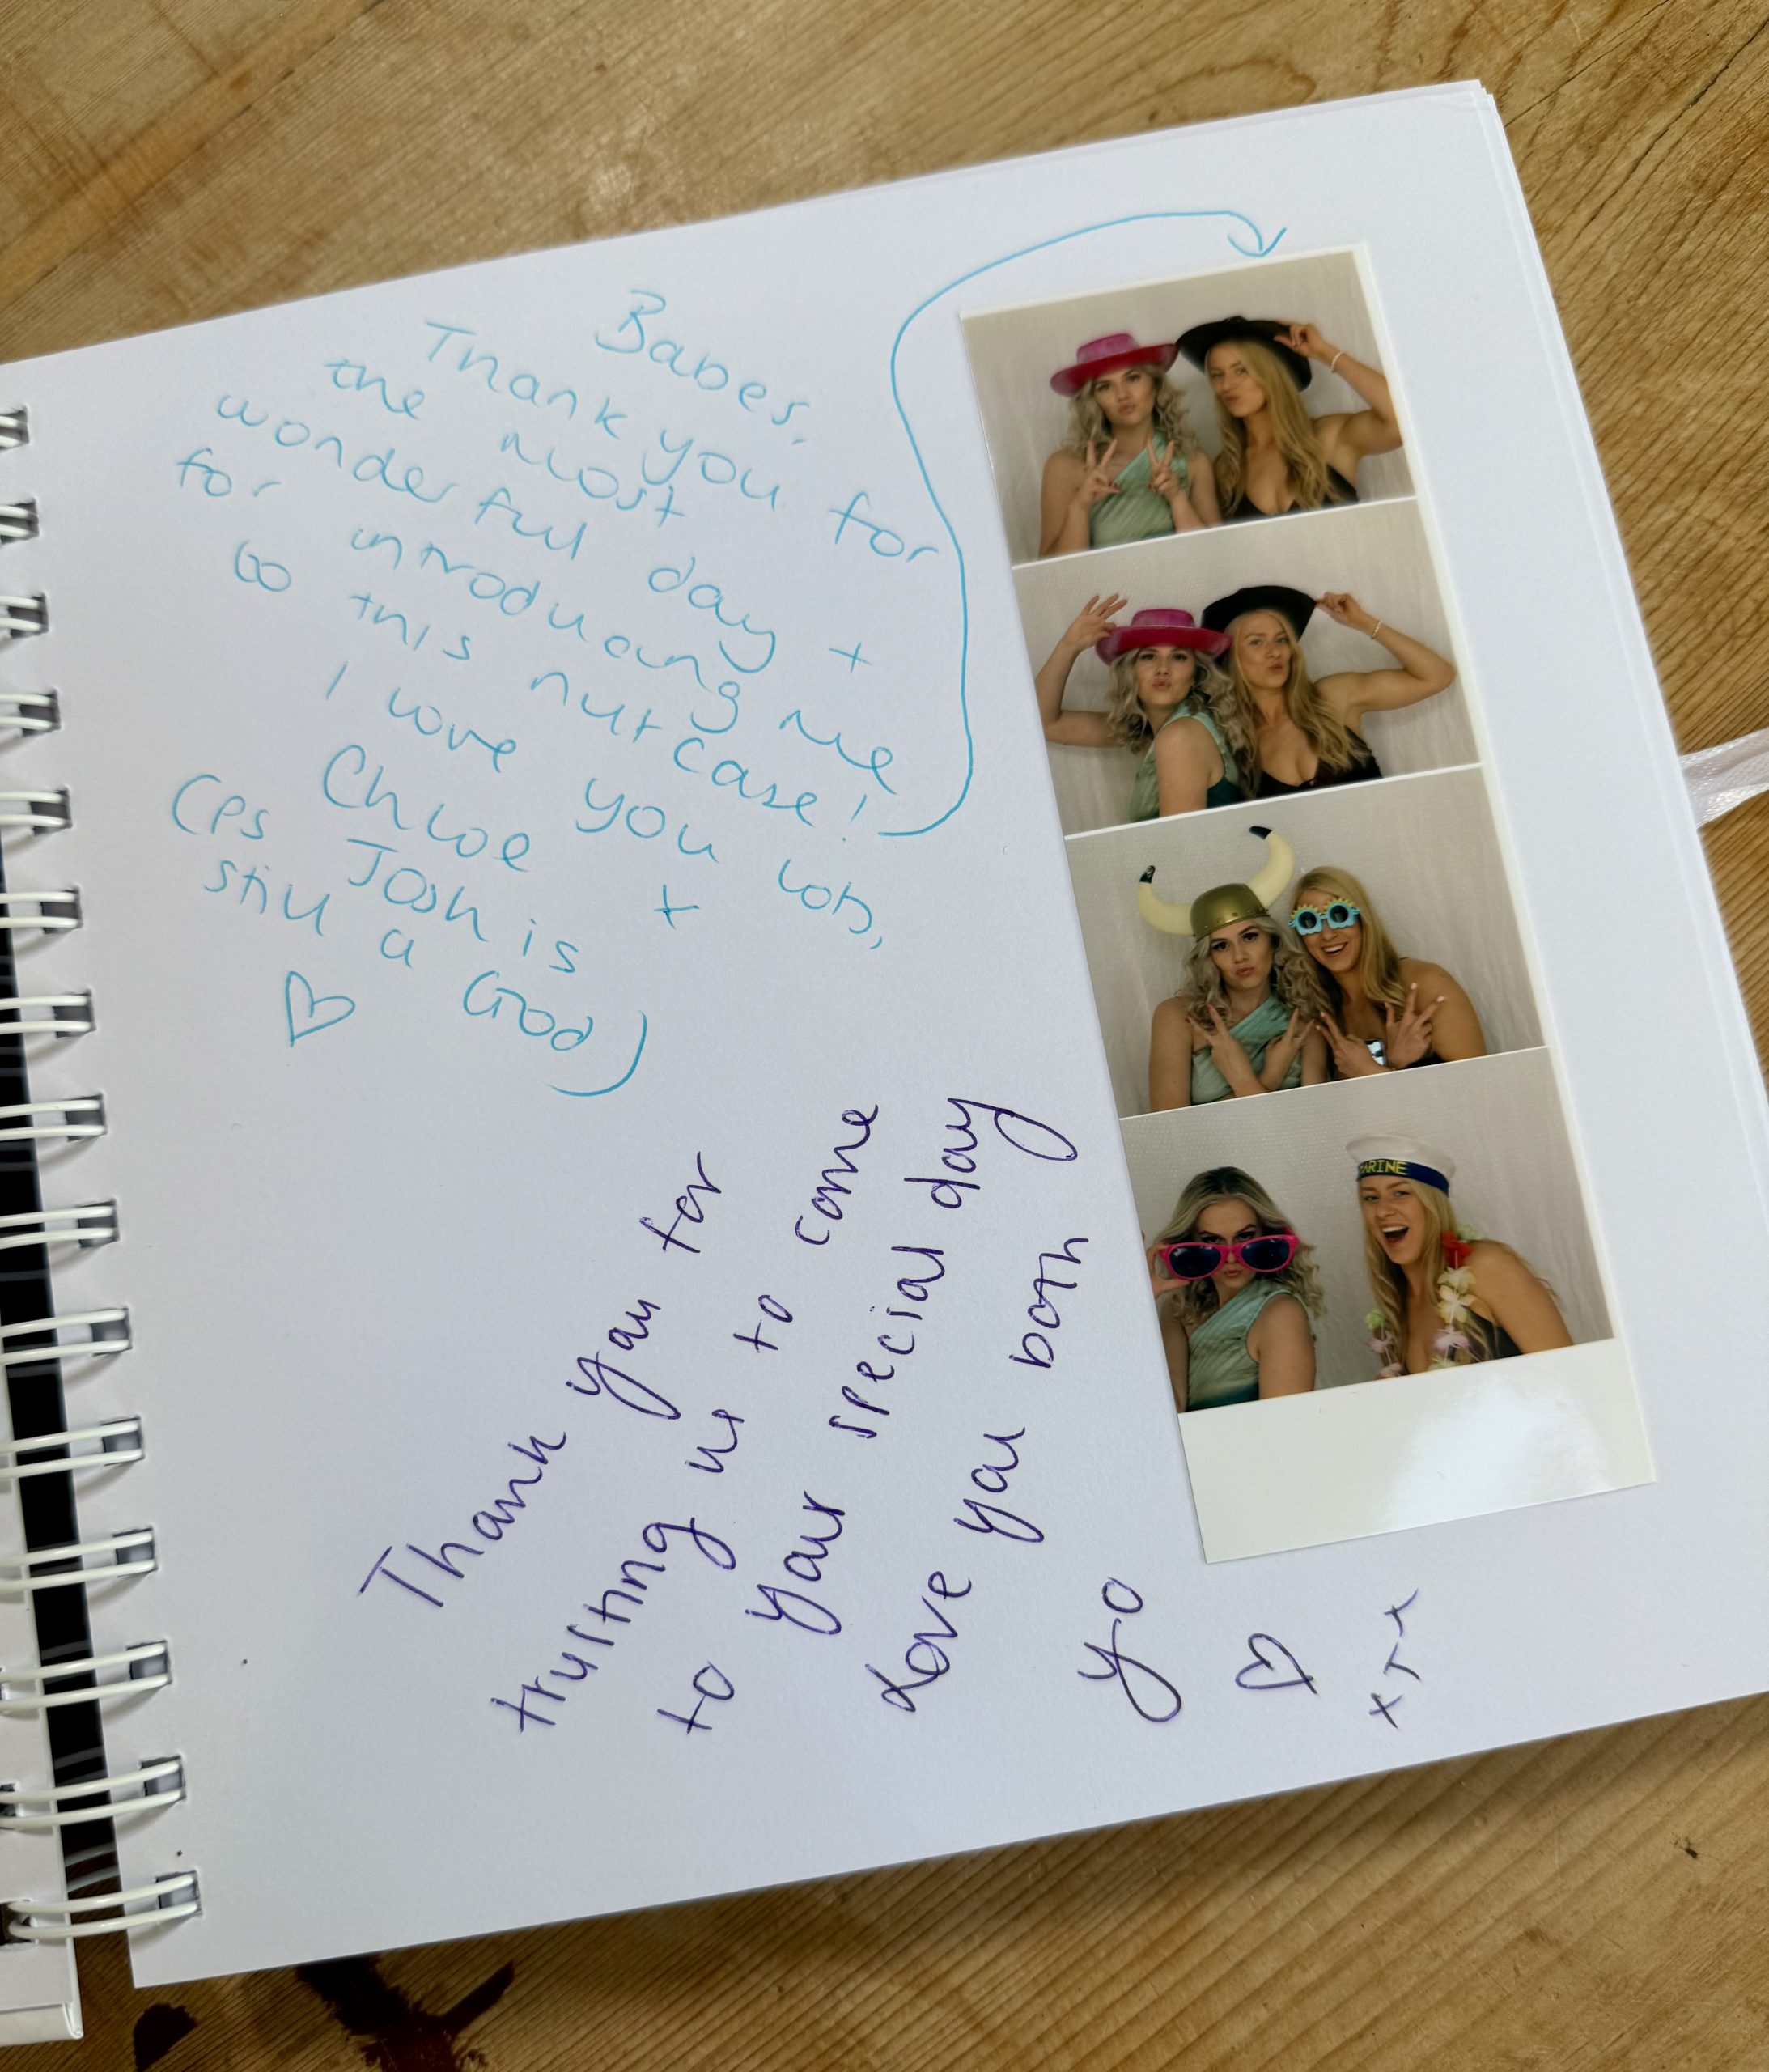 Babes,
Thank you for
the most
wonderful day +
for introducing me
to this nut case!
I love you lots,
Chloe x
(ps Josh is
still a God)
Thank you for
trusting us to come
to your special day
Love you both
yo
xxx
ARINE